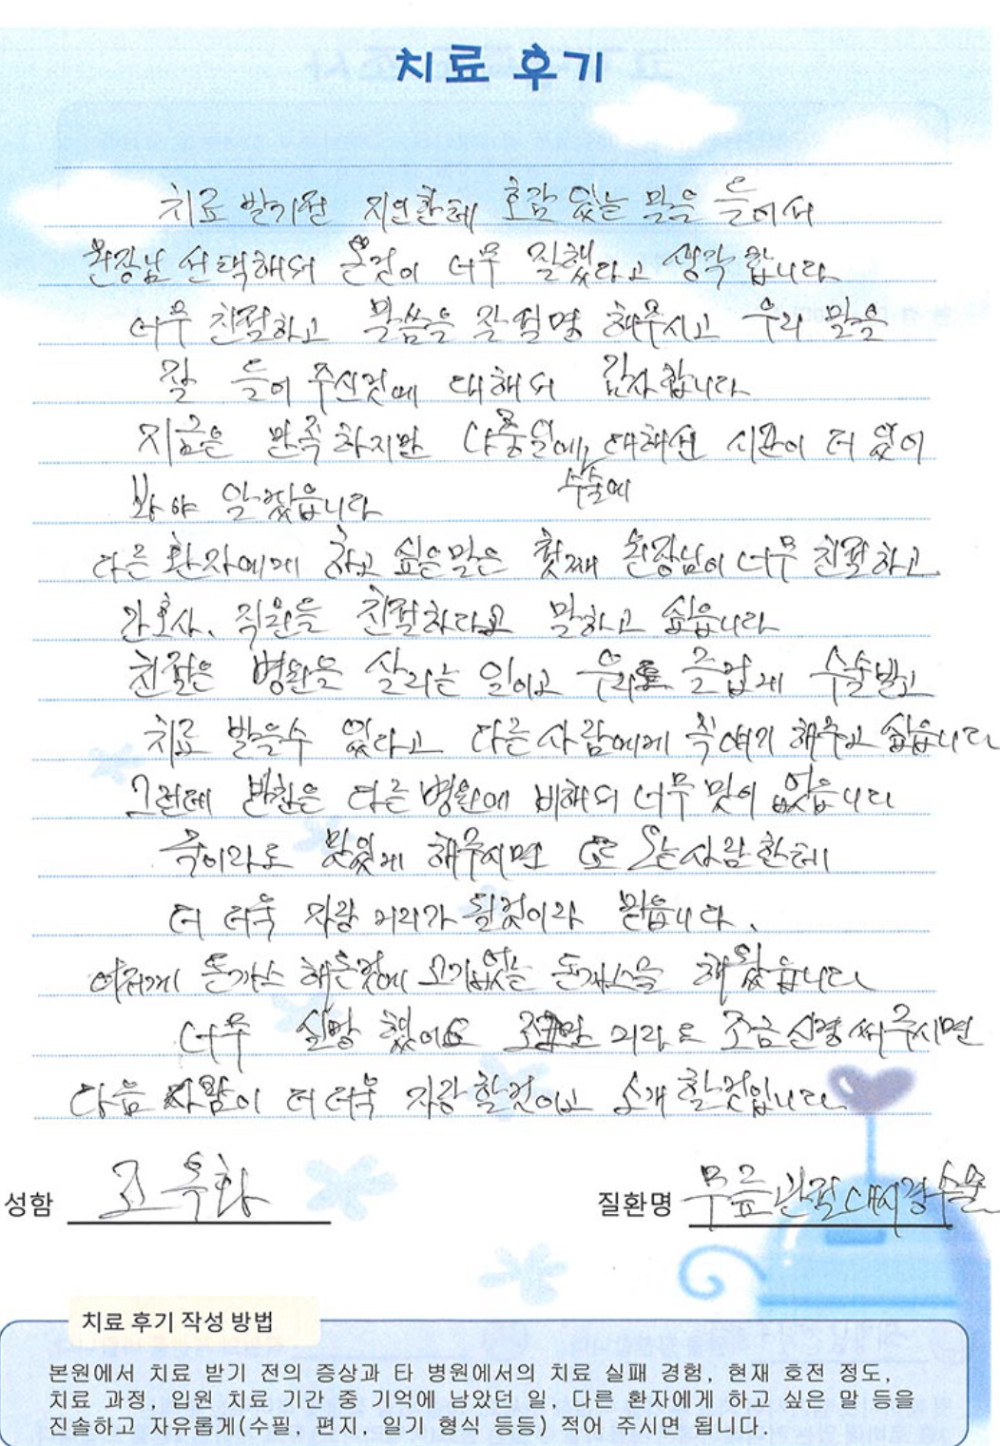 치료 후기
치료 받기전 지인한테 호감 있는 말을 들어서
원장님 선택해서 온것이 너무 잘했다고 생각 합니다
너무 친절하고 말씀을 잘 설명 해주시고 우리 말을
잘 들어 주신것에 대해서 감사합니다
지금은 만족하지만 나중일에 대해선 시간이 더 있어
수술에
봐야 알겠습니다
다른 환자에게 하고 싶은말은 첫째 원장님이 너무 친절하고
간호사, 직원들 친절하다고 말하고 싶습니다
친절은 병원을 살리는 일이고 우리도 즐겁게 수술받고
치료 받을수 있다고 다른 사람에게 해주고 싶습니다
그런데 반찬은 다른 병원에 비해서 너무 맛이 없습니다
죽이라도 맛있게 해주시면 또 오는 사람한테
더 더욱 자랑 거리가 될것이라 믿습니다.
어저께 돈까스 해준것에 고기없는 돈까스을 해왔습니다
너무 실망 했어요 조금 신경써주시면
다음 사람이 더 더욱 자랑할것이고 소개 할것입니다
성함 고옥화
질환명 무릎관절내시경수술
치료 후기 작성 방법
본원에서 치료 받기 전의 증상과 타 병원에서의 치료 실패 경험, 현재 호전 정도,
치료 과정, 입원 치료 기간 중 기억에 남았던 일, 다른 환자에게 하고 싶은 말 등을
진솔하고 자유롭게(수필, 편지, 일기 형식 등등) 적어 주시면 됩니다.